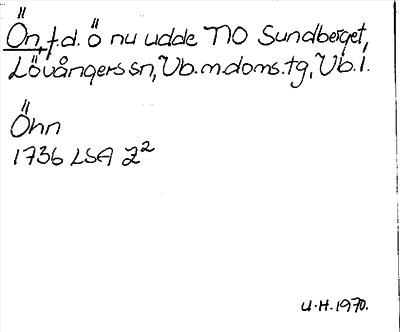 Ön, f.d. ö nu udde NO Sundberget,
Lövångers sn, Vb.m.doms.tg, Vb.l.
Öhn
1736 LSA Z²
U.H. 1970.